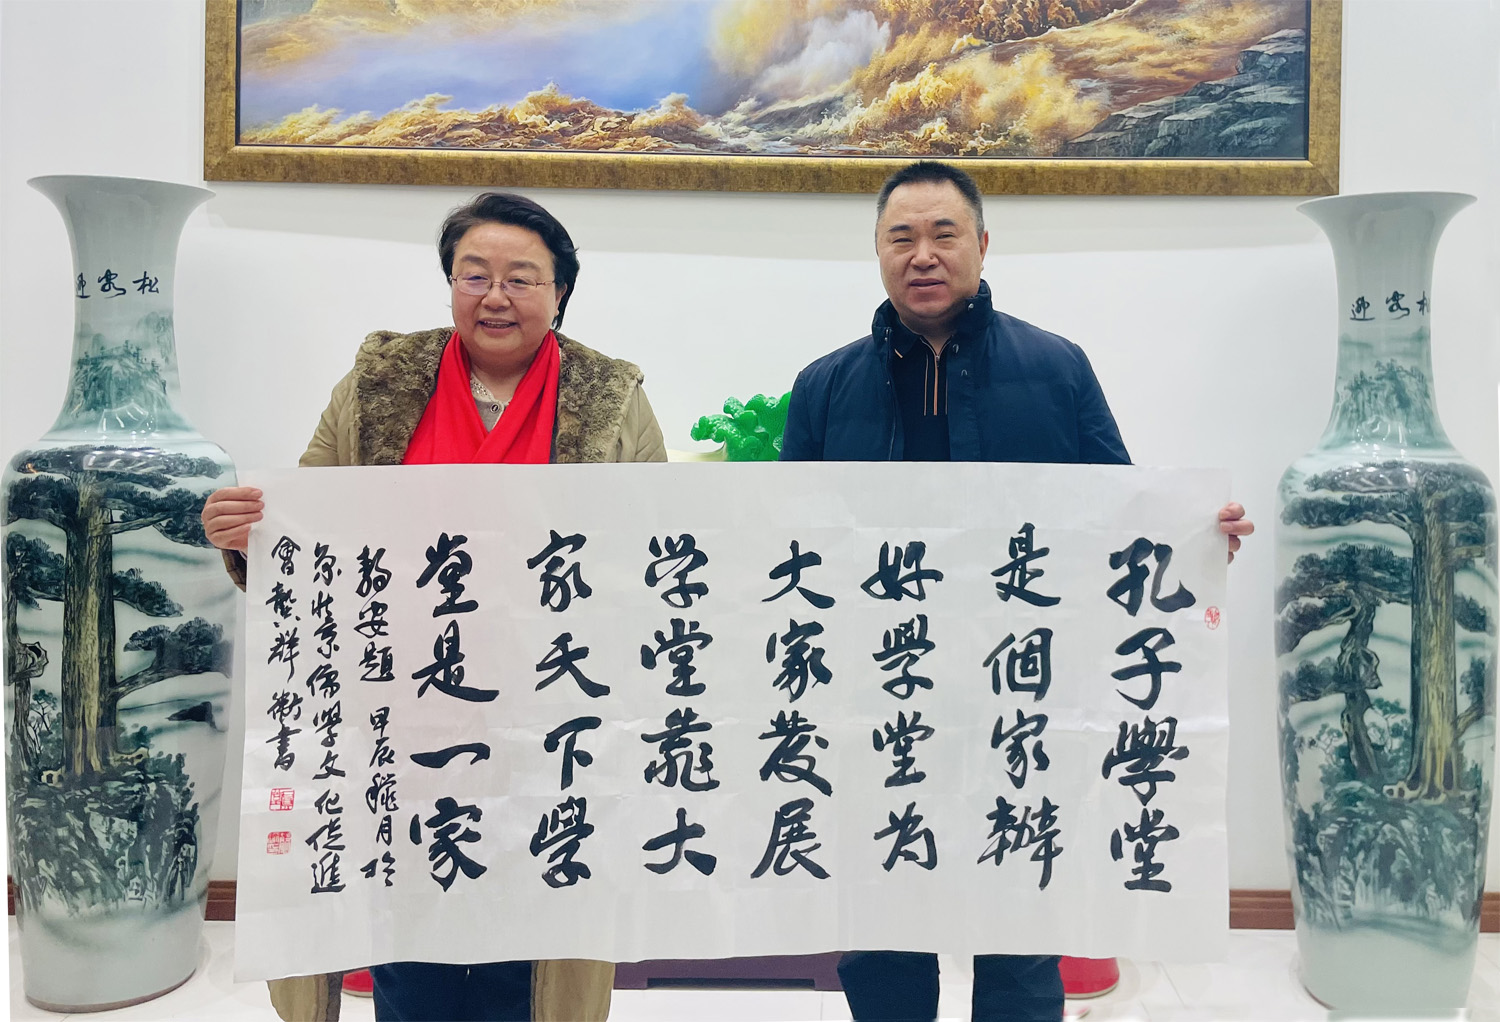 孔子學堂
是個家辦
好學堂为
大家發展
学堂靠大
家天下學
堂是一家
安題 甲辰 月於
京 儒學文化促進
會 群 書
迎客松
迎客松